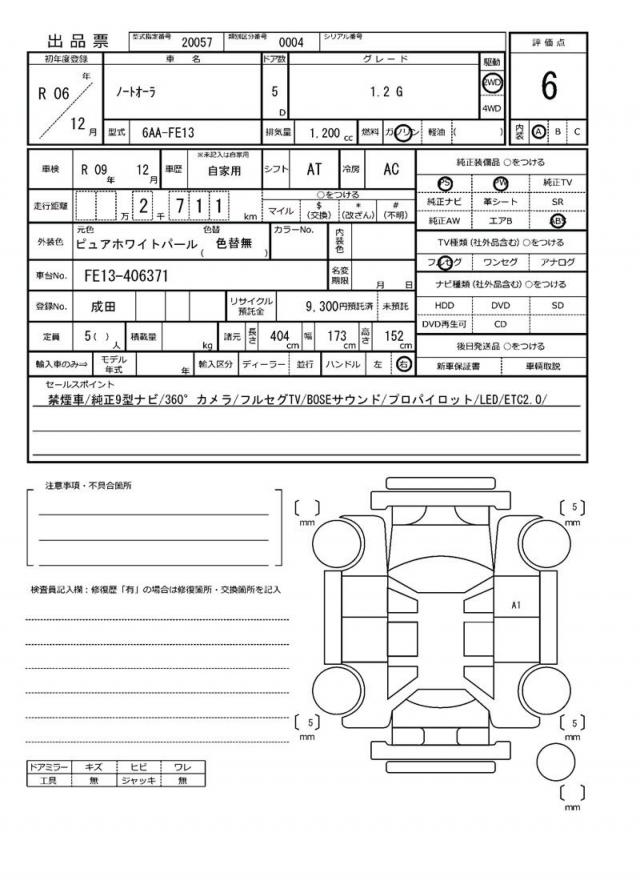 出品票 型式指定番号 20057 類別区分番号 0004 シリアル番号
初年度登録 車名 ドア数 グレード 駆動 評価点
R 06 年 12 月 ノートオーラ 5 D 1.2 G 2WD 4WD 6
型式 6AA-FE13 排気量 1.200 cc 燃料 ガソリン 軽油 ( ) 内装 A B C
車検 R 09 年 12 月 車歴 ※未記入は自家用 自家用 シフト AT 冷房 AC
純正装備品 ○をつける
PS PW 純正TV
走行距離 万 2 千 7 1 1 km ○をつける
マイル $ (交換) * (改ざん) # (不明)
純正ナビ 革シート SR
純正AW エアB ABS
外装色 元色 ピュアホワイトパール 色替 ( 色替無 ) カラーNo. 内装色
TV種類 (社外品含む) ○をつける
フルセグ ワンセグ アナログ
車台No. FE13-406371 名変期限 月 日
ナビ種類 (社外品含む) ○をつける
登録No. 成田 リサイクル預託金 9,300円預託済 未預託
HDD DVD SD
DVD再生可 CD
定員 5 ( ) 人 積載量 kg 諸元 長さ 404 cm 幅 173 cm 高さ 152 cm
後日発送品 ○をつける
輸入車のみ⇒ モデル年式 年 輸入区分 ディーラー 並行 ハンドル 左 右
新車保証書 車輌取説
セールスポイント
禁煙車/純正9型ナビ/360° カメラ/フルセグTV/BOSEサウンド/プロパイロット/LED/ETC2.0/
注意事項・不具合箇所
検査員記入欄：修復歴「有」の場合は修復箇所・交換箇所を記入
[ ] mm
[ 5 ] mm
A1
[ 5 ] mm
[ 5 ] mm
[ ] mm
ドアミラー キズ ヒビ ワレ
工具 無 ジャッキ 無